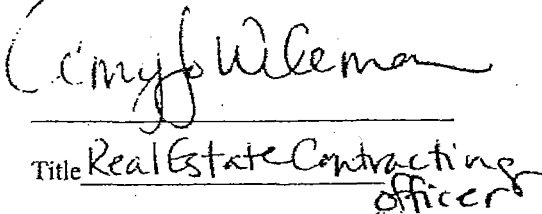 Amy Jo Wileman
Title Real Estate Contracting
officer